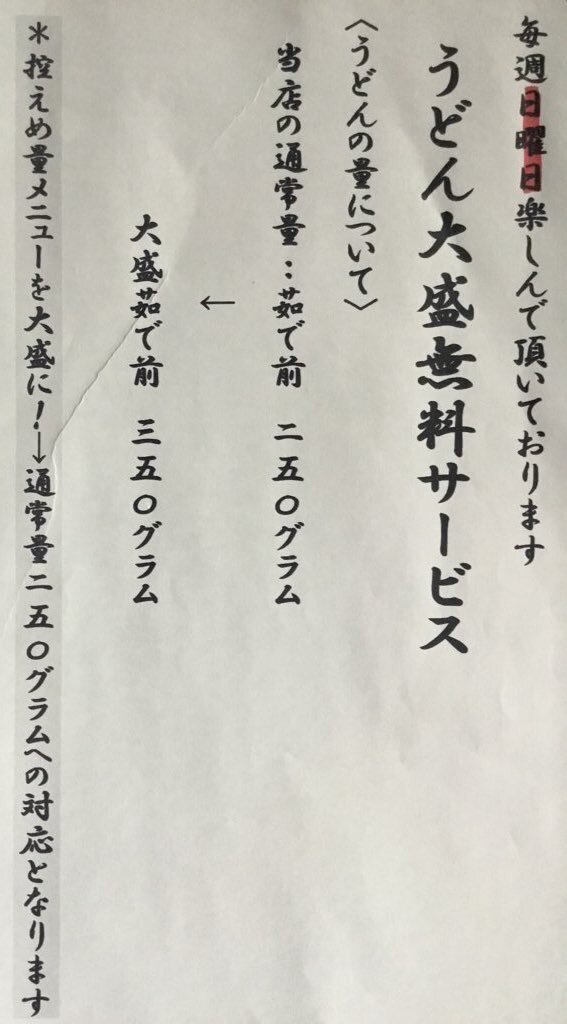 毎週日曜日楽しんで頂いております
うどん大盛無料サービス
〈うどんの量について〉
当店の通常量：茹で前　二五〇グラム
←
大盛茹で前　三五〇グラム
＊控えめ量メニューを大盛に！→通常量二五〇グラムへの対応となります